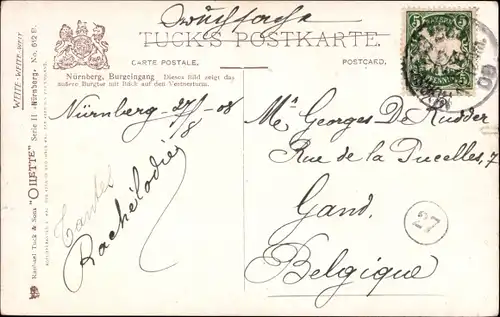 Drucksache
TUCK'S POSTKARTE.
CARTE POSTALE.
POSTCARD.
Nürnberg, Burgeingang Dieses Bild zeigt das
äußere Burgtor mit Blick auf den Vestnerturm.
5
BAYERN
5
PFENNIG
Nürnberg 27/8 - 08
Mr. Georges De Rudder
Rue de la Pucelles, 7
Gand.
Belgique
Tantes
27
WEIT-WEIT-WEIT
Raphael Tuck & Sons "OILETTE" Serie II «Nürnberg» No. 612 B.